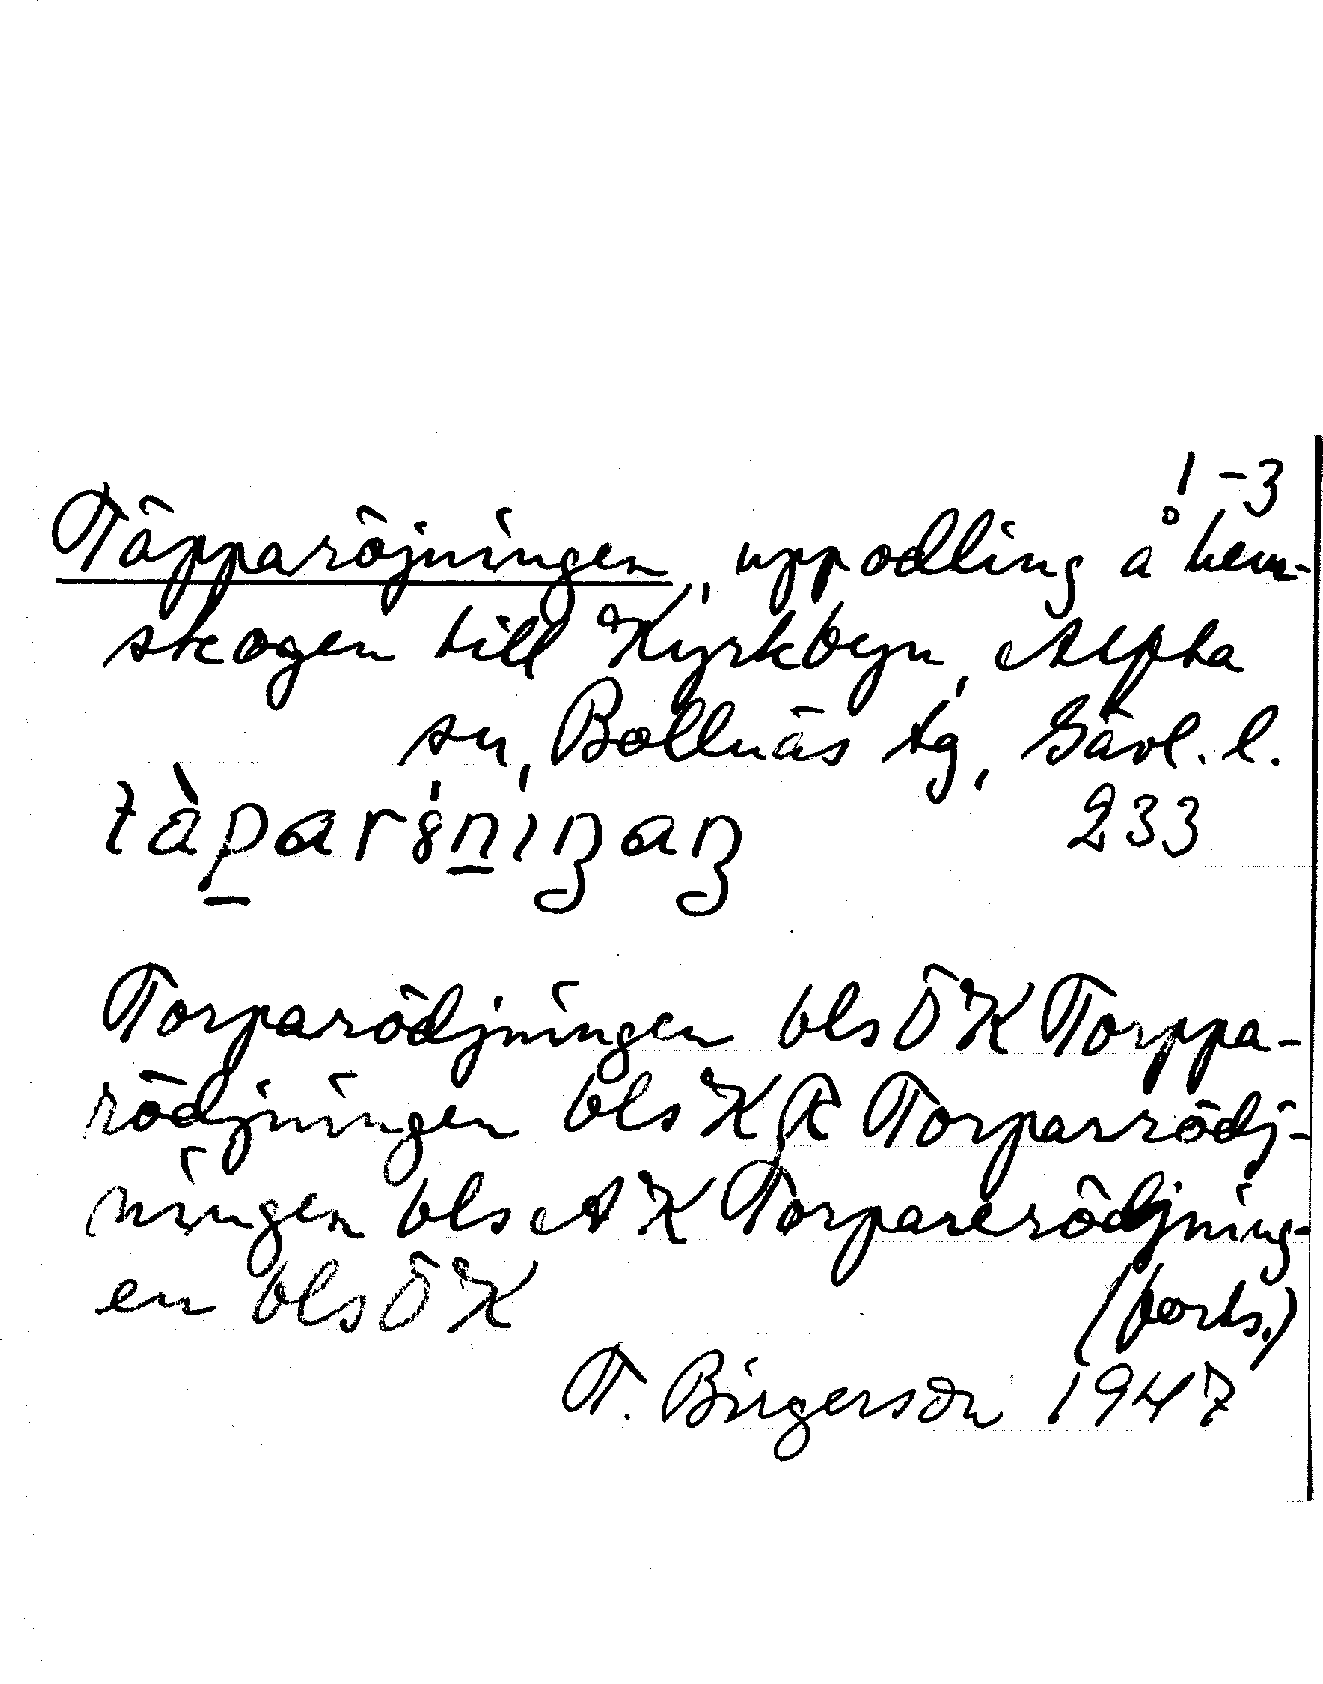 1-3
Täpparöjningen, uppodling å hem-
skogen till Kyrkbyn, Alfta
sn, Bollnäs tg, Gävl. l.
233
Torparödjningen bls ÖK Torppa-
rödjningen bls K R Torparrödj-
ningen bls AK Torparerödjning-
en bls ÖK
(forts.)
T. Birgerson 1947